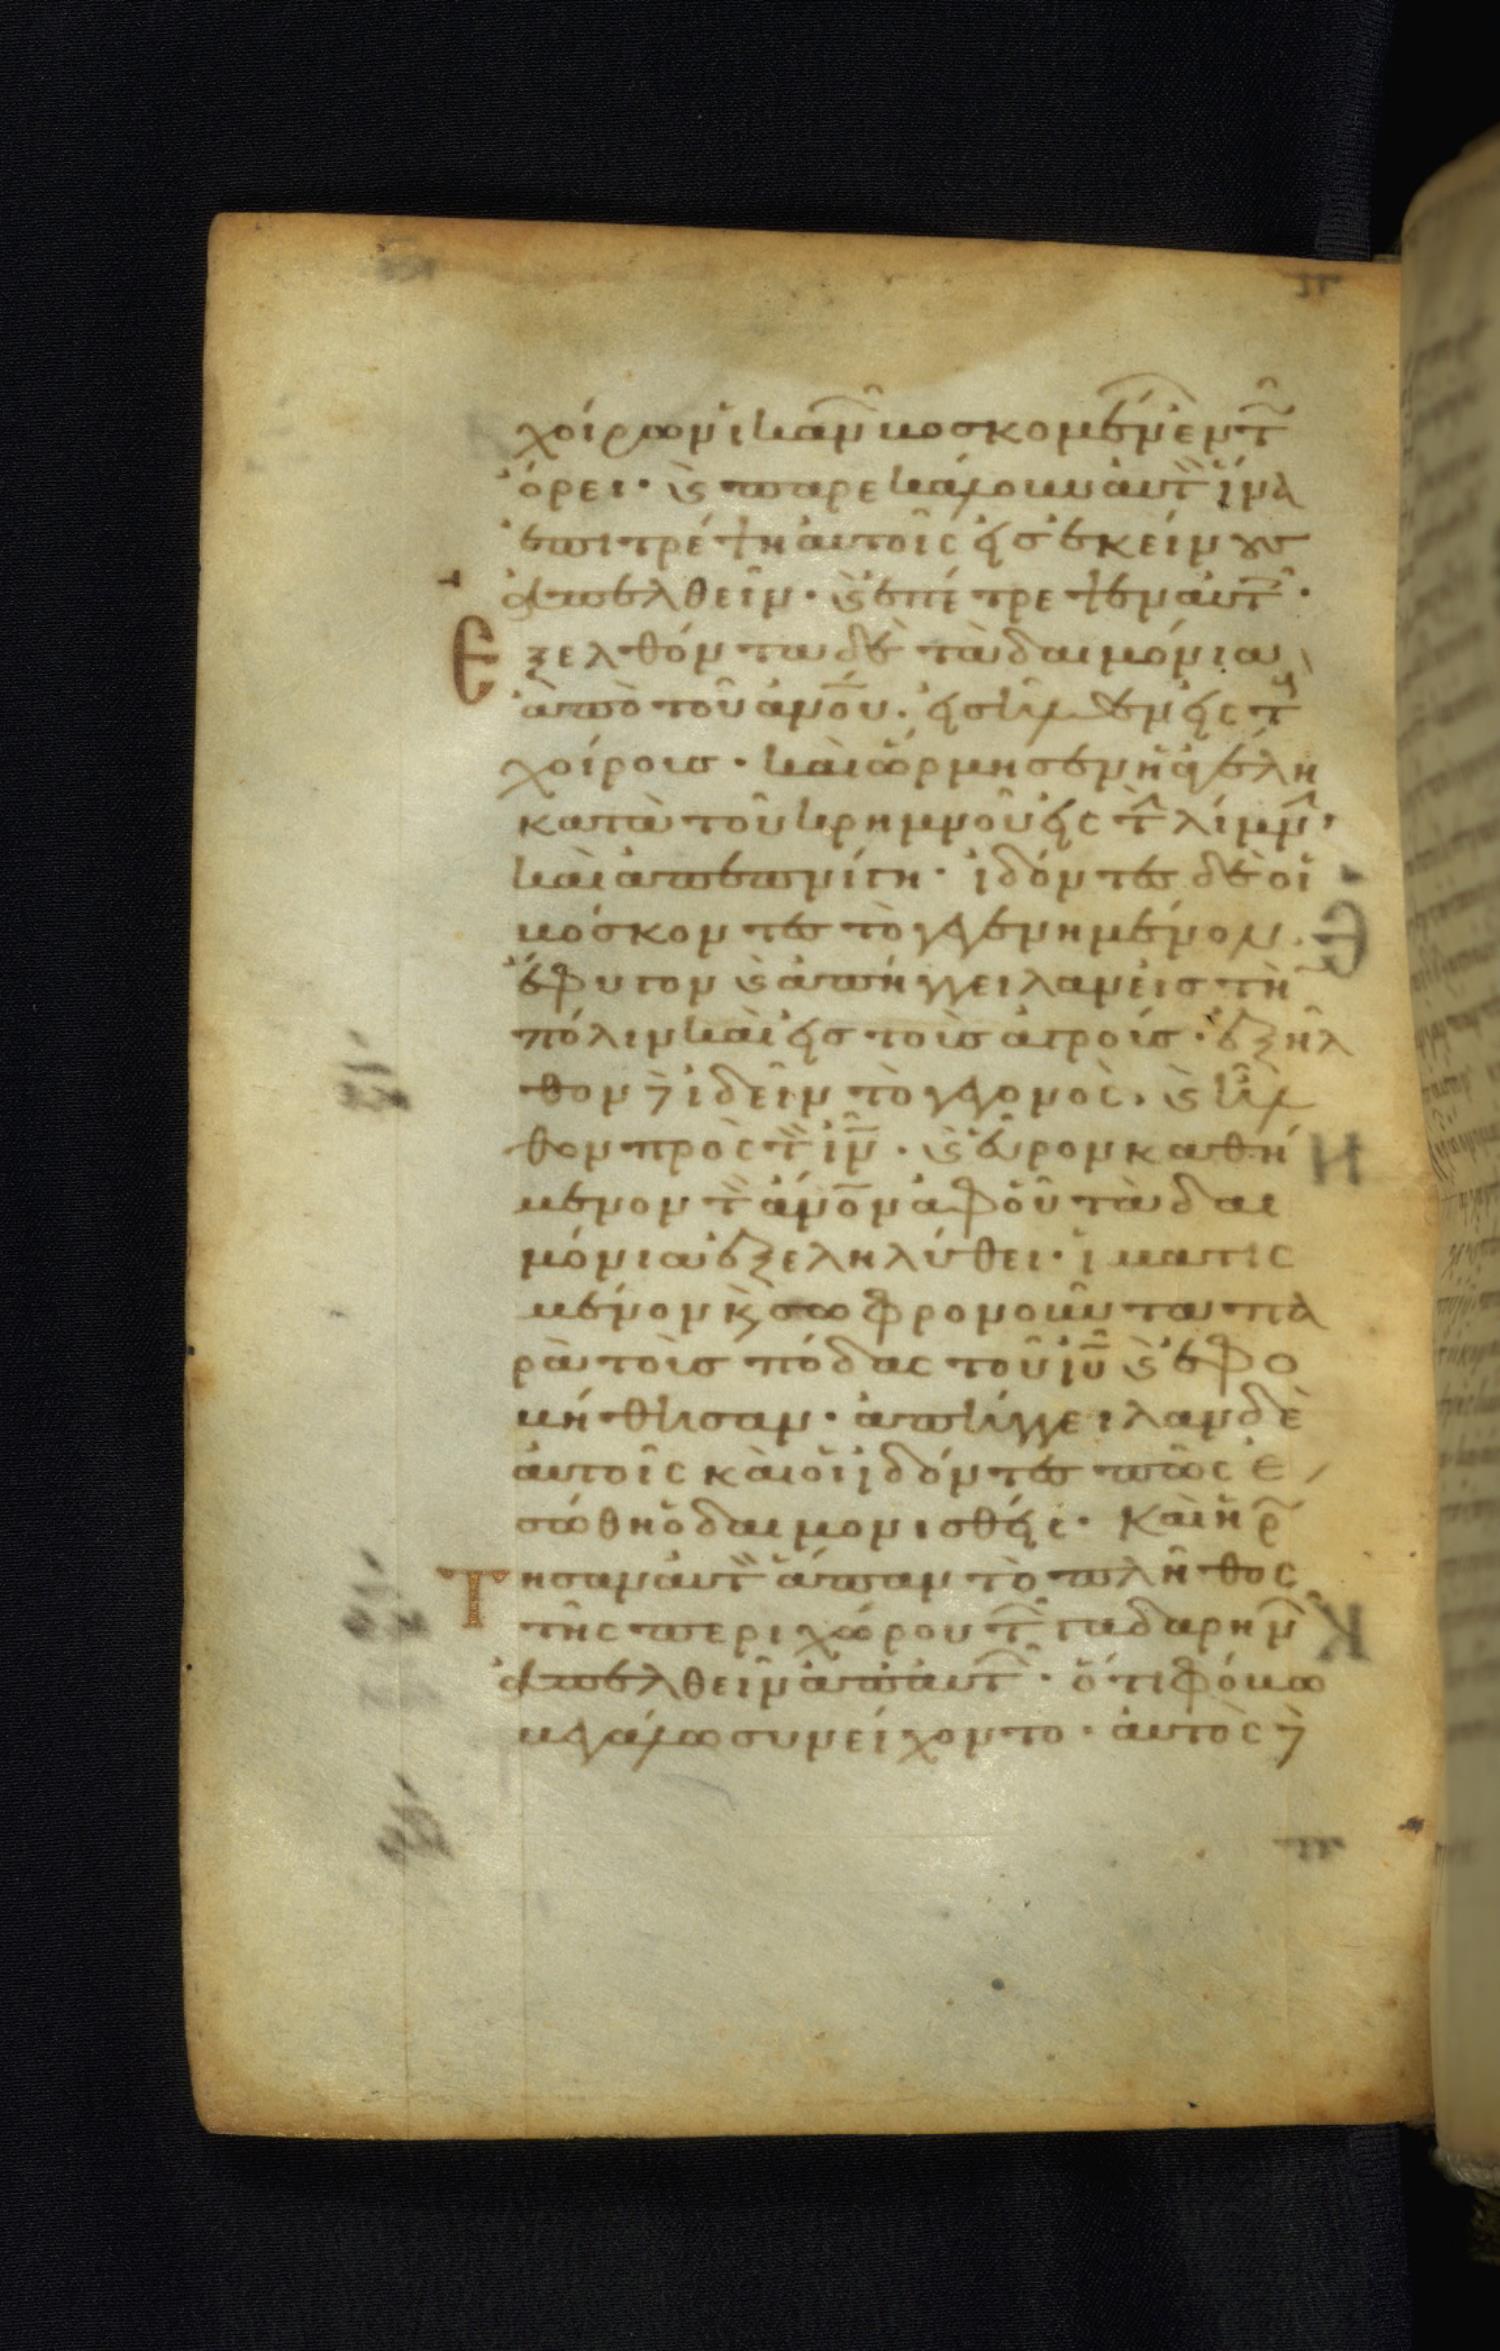 χοίρων ἱκανῶν βοσκομένων ἐν τῶ
ὄρει· καὶ παρεκάλουν αὐτὸν ἵνα
ἐπιτρέψη αὐτοῖς εἰς ἐκείνους
εἰσελθεῖν· καὶ ἐπέτρεψεν αὐτοῖς·
Ε ξελθόντα δὲ τὰ δαιμόνια
ἀπὸ τοῦ ἀνου· εἰσῆλθεν εἰς τοὺς
χοίρους· καὶ ὥρμησεν ἡ ἀγέλη
κατὰ τοῦ κρημνοῦ εἰς τὴν λίμνην·
καὶ ἀπεπνίγη· ἰδόντες δὲ οἱ
βόσκοντες τὸ γεγενημένον·
ἔφυγον καὶ ἀπήγγειλαν εἰς τὴν
πόλιν καὶ εἰς τοὺς ἀγρούς· ἐξῆλ
θον δὲ ἰδεῖν τὸ γεγονὸς· καὶ ἦλ
θον πρὸς τὸν ιν· καὶ εὗρον καθή
μενον τὸν ἀνον ἀφ οὗ τὰ δαι
μόνια ἐξεληλύθει· ἱματισ
μένον καὶ σωφρονοῦντα πα
ρὰ τοὺς πόδας τοῦ ιυ καὶ ἐφο
βήθησαν· ἀπήγγειλαν δὲ
αὐτοῖς καὶ οἱ ἰδόντες πῶς ἐ
σώθη ὁ δαιμονισθείς· Καὶ ἠρώ
Τ ησαν αὐτὸν ἅπαν τὸ πλῆθος
τῆς περιχώρου τῶν γαδαρηνῶν
ἀπελθεῖν ἀπ αὐτῶν· ὅτι φόβω
μεγάλω συνείχοντο· αὐτὸς δὲ